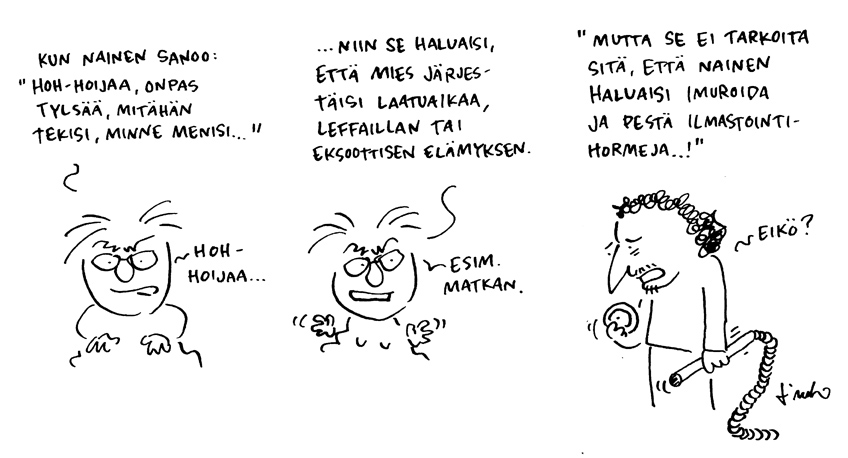 KUN NAINEN SANOO:
"HOH-HOIJAA, ONPAS
TYLSÄÄ, MITÄHÄN
TEKISI, MINNE MENISI..."
HOH-
HOIJAA...
...NIIN SE HALUAISI,
ETTÄ MIES JÄRJES-
TÄISI LAATUAIKAA,
LEFFAILLAN TAI
EKSOOTTISEN ELÄMYKSEN.
ESIM.
MATKAN.
"MUTTA SE EI TARKOITA
SITÄ, ETTÄ NAINEN
HALUAISI IMUROIDA
JA PESTÄ ILMASTOINTI-
HORMEJA..!"
EIKÖ?